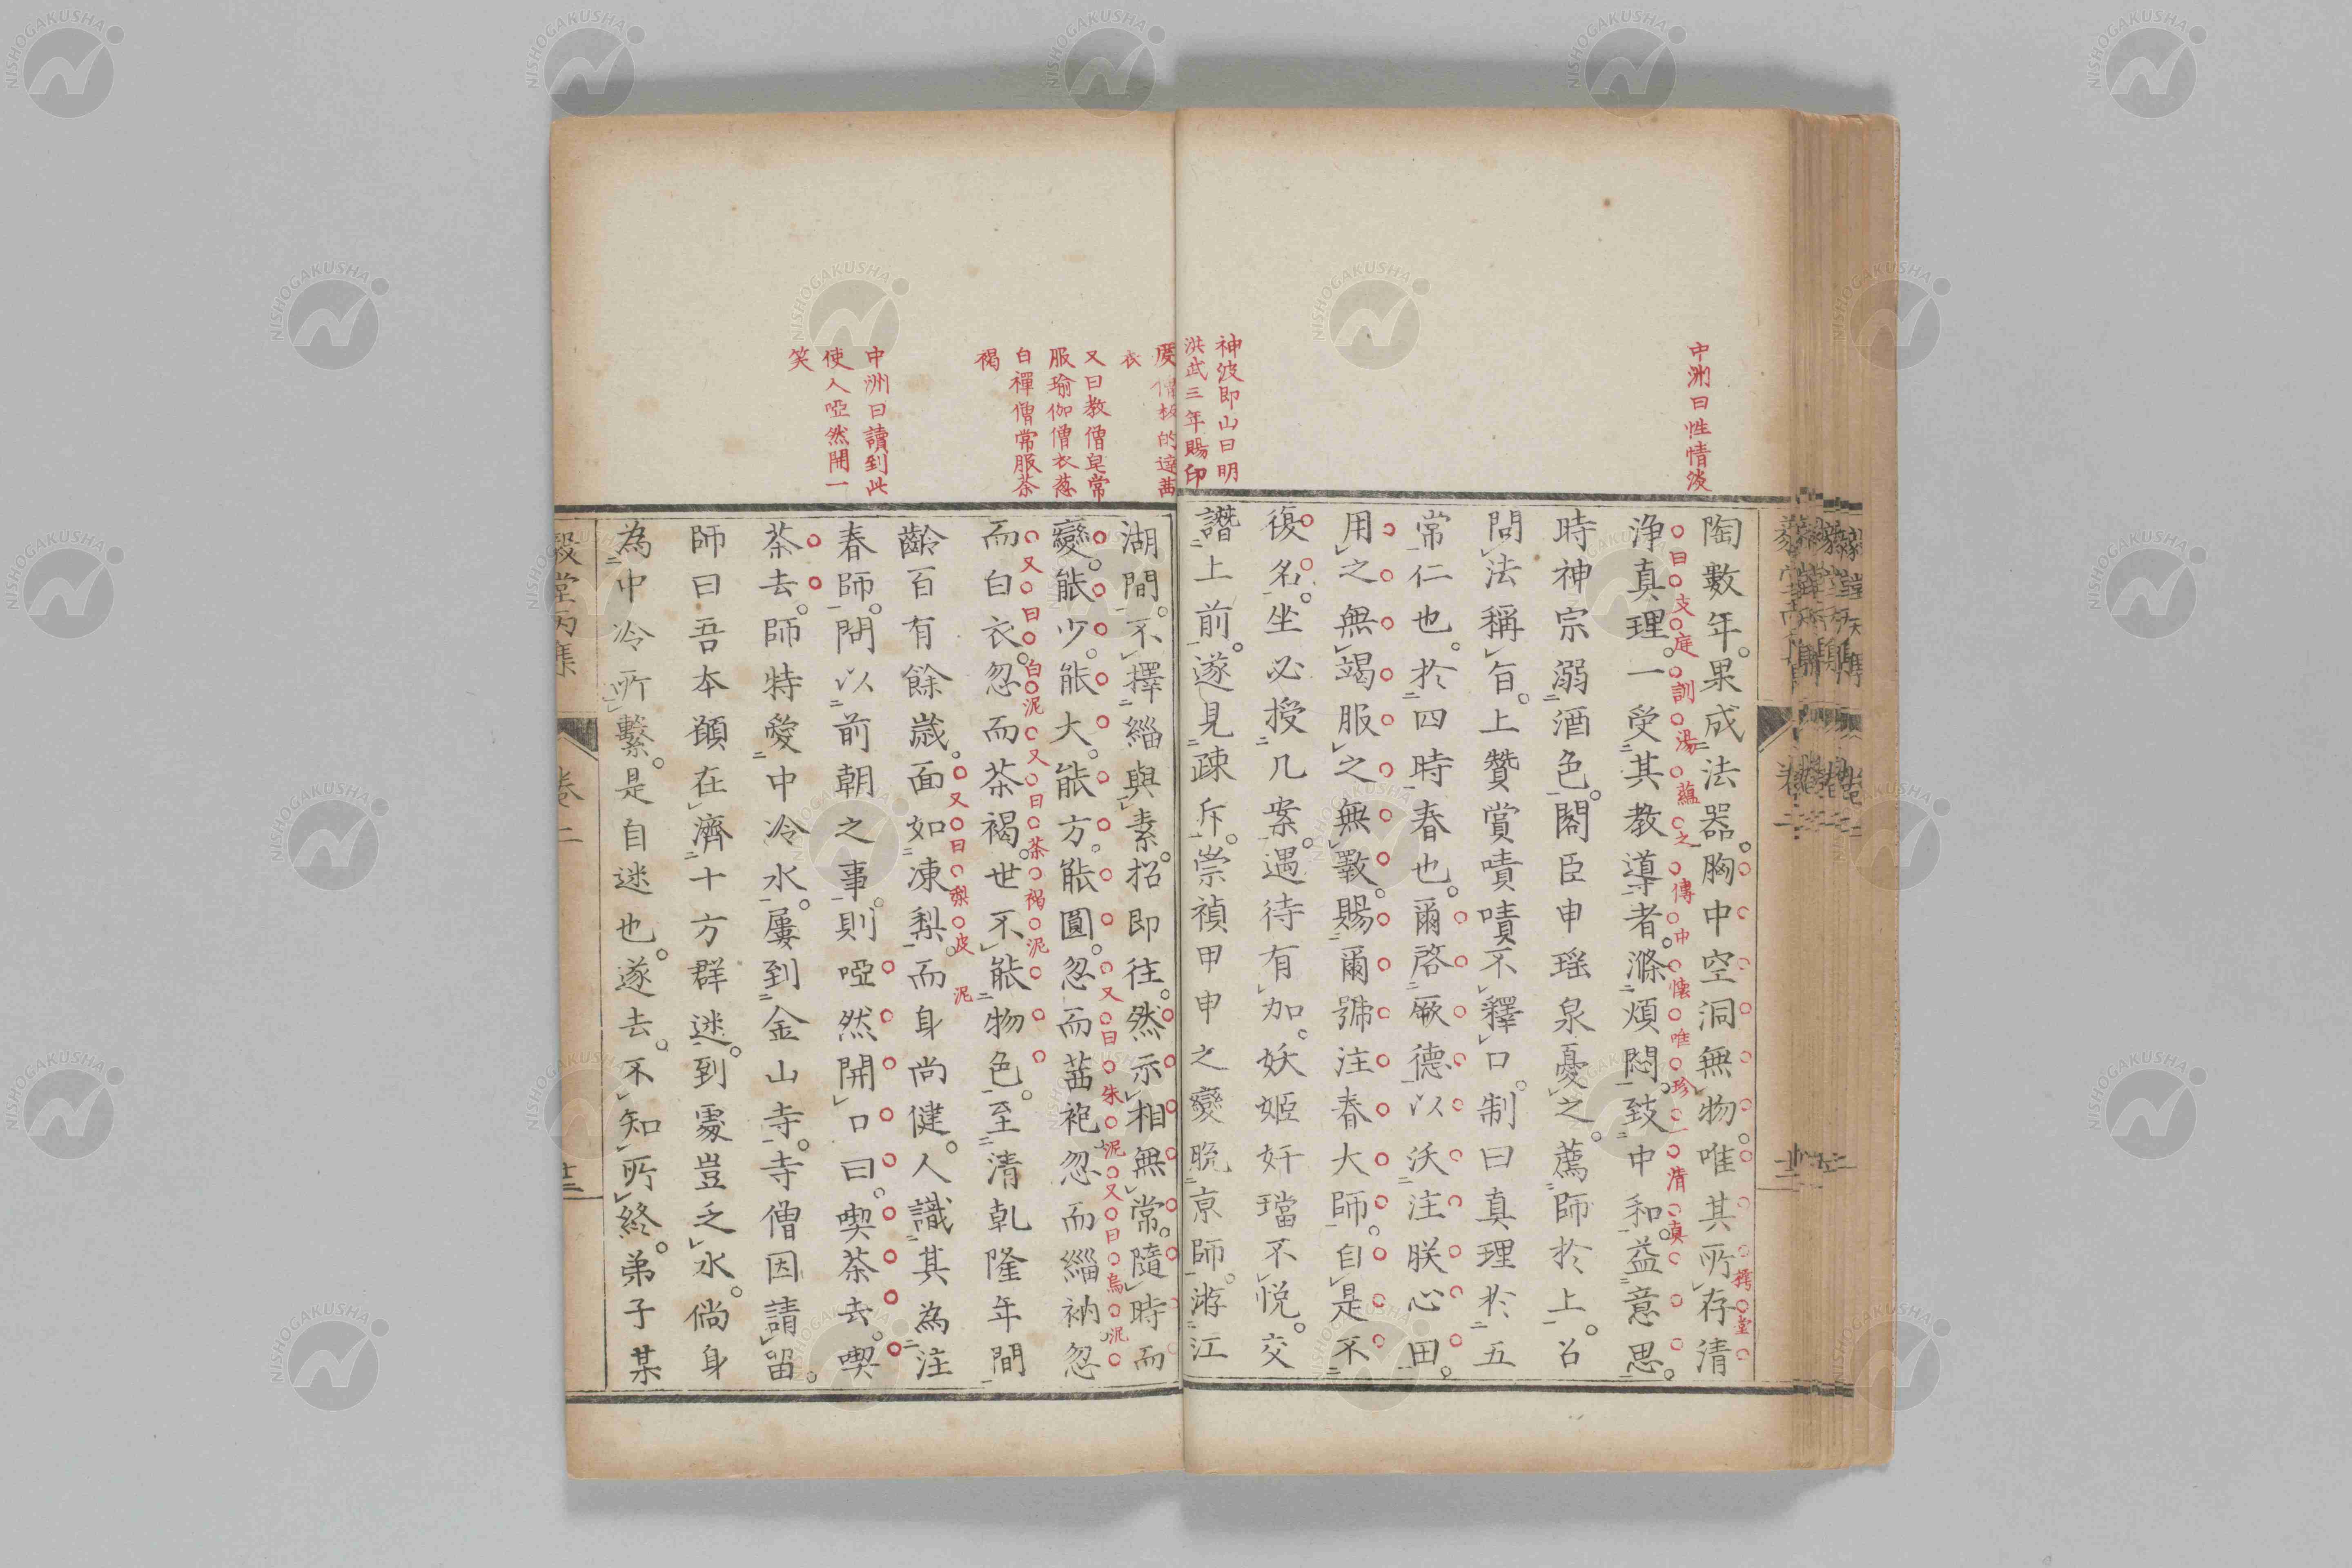 中洲曰性情波
陶數年果成法器胸中空洞無物唯其所存清
淨真理一受其教導者滌煩悶致中和益意思
曰支庭訓湯蘊之傳中懷唯珍一清真
時神宗溺酒色閣臣申瑶泉憂之薦師於上召
問法稱旨上贊賞嘖嘖不釋口制曰真理於五
常仁也於四時春也爾啓厥德以沃注朕心田
用之無竭服之無斁賜爾號注春大師自是不
復名坐必授几案遇待有加妖姬奸璫不悦交
譖上前遂見疎斥崇禎甲申之變脱京師游江
神波即山曰明
洪武三年賜印
度僧板的達茜
衣
又曰教僧皂常
服瑜伽僧衣葱
白禪僧常服茶
褐
中洲曰讀到此
使人啞然開一
笑
湖間不擇緇與素招即往然示相無常隨時而
變能少能大能方能圓忽而茜袍忽而緇衲忽
又曰朱泥又曰烏泥
而白衣忽而茶褐世不能物色至清乾隆年間
又曰白泥又曰茶褐泥
齡百有餘歲面如凍梨而身尚健人識其為注
又曰梨皮泥
春師問以前朝之事則啞然開口曰喫茶去喫
茶去師特愛中冷水屢到金山寺寺僧因請留
師曰吾本願在濟十方群迷到處豈乏水倘身
為中冷所繫是自迷也遂去不知所終弟子某
卷二
NISHOGAKUSHA